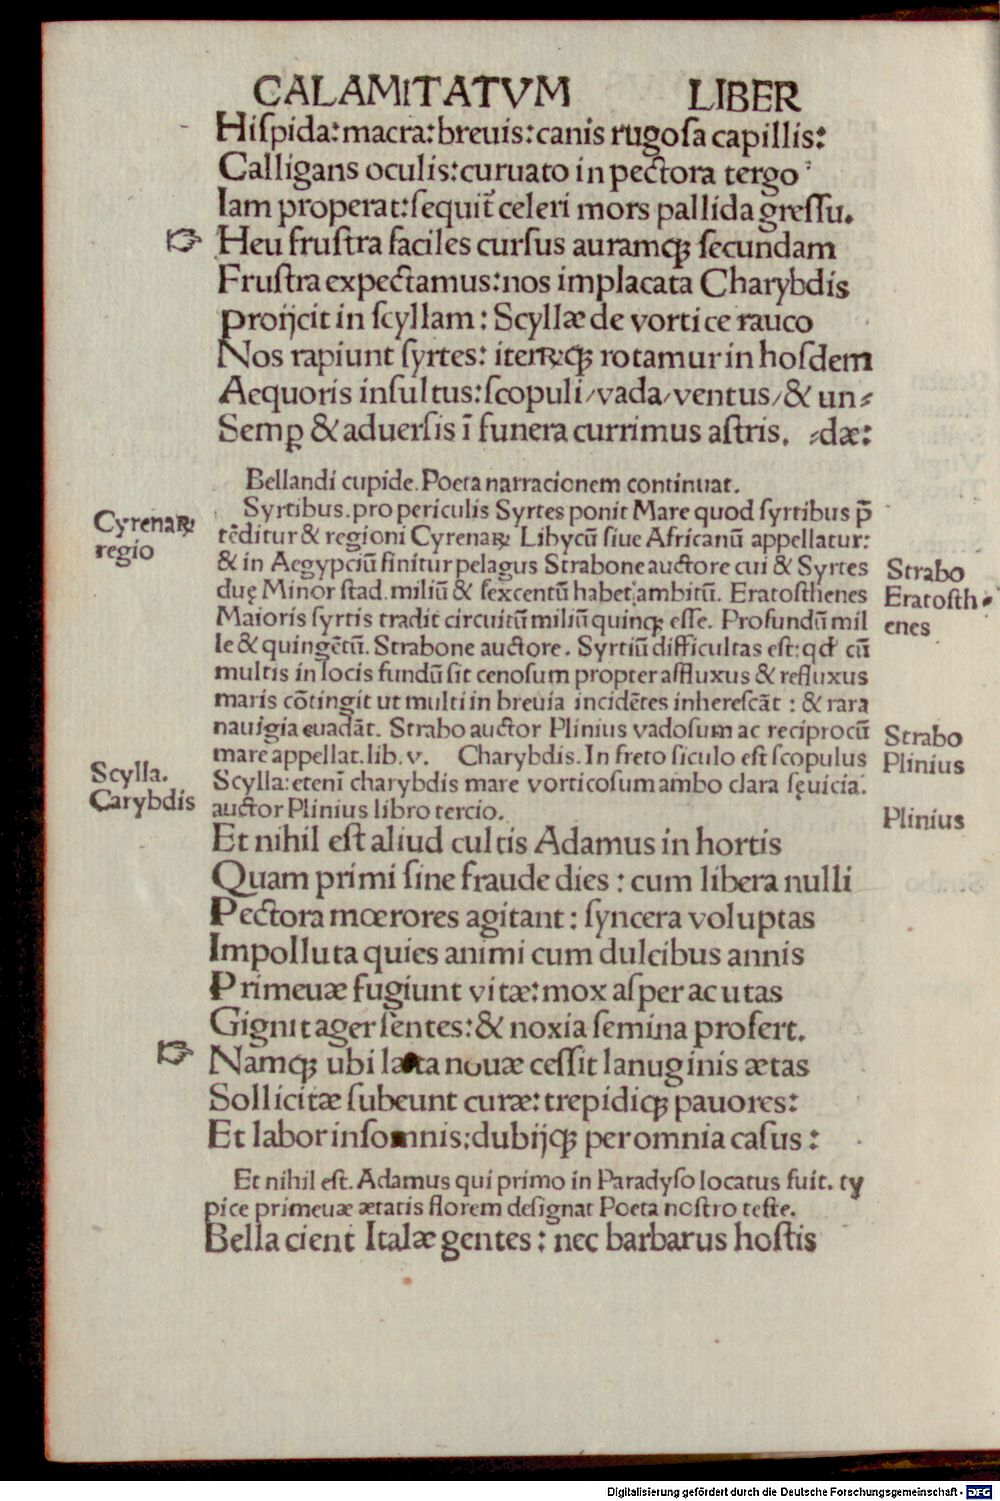 CALAMITATVM LIBER
Hiſpida: macra: breuis: canis rugoſa capillis:
Calligans oculis: curuato in pectora tergo:
Iam properat: ſequit̄ celeri mors pallida greſſu.
☞ Heu fruſtra faciles curſus auramqꝫ ſecundam
Fruſtra expectamus: nos implacata Charybdis
proijcit in ſcyllam: Scyllæ de vortice rauco
Nos rapiunt ſyrtes: iterꝝqꝫ rotamur in hoſdem
Aequoris inſultus: ſcopuli/ vada/ ventus/ & un⸗
Semꝑ & aduerſis ī funera currimus aſtris. ⸗dæ:
Bellandi cupide. Poeta narracionem continuat.
Syrtibus. pro periculis Syrtes ponit Mare quod ſyrtibus p̄
Cyrenaꝝ
tēditur & regioni Cyrenaꝝ Libycū ſiue Africanū appellatur:
regio
& in Aegypciū finitur pelagus Strabone auctore cui & Syrtes
Strabo
duę Minor ſtad. miliū & ſexcentū habet ambitū. Eratoſthenes
Eratoſth⸗
Maioris ſyrtis tradit circuitū miliū quinqꝫ eſſe. Profundū mil
enes
le & quingētū. Strabone auctore. Syrtiū difficultas eſt: qđ cū
multis in locis fundū ſit cenoſum propter affluxus & refluxus
maris cōtingit ut multi in breuia incidētes inhereſcāt : & rara
nauigia euadāt. Strabo auctor Plinius vadoſum ac reciprocū
Strabo
mare appellat. lib. v. Charybdis. In freto ſiculo eſt ſcopulus
Plinius
Scylla.
Scylla: etenī charybdis mare vorticoſum ambo clara ſęuicia.
Carybdis
auctor Plinius libro tercio.
Plinius
Et nihil eſt aliud cultis Adamus in hortis
Quam primi ſine fraude dies : cum libera nulli
Pectora mœrores agitant : ſyncera voluptas
Impolluta quies animi cum dulcibus annis
Primeuæ fugiunt vitæ: mox aſper acutas
Gignit ager ſentes: & noxia ſemina profert.
☞ Namqꝫ ubi læta nouæ ceſſit lanuginis ætas
Sollicitæ ſubeunt curæ: trepidiqꝫ pauores:
Et labor inſomnis: dubijqꝫ per omnia caſus :
Et nihil eſt. Adamus qui primo in Paradyſo locatus fuit. ty
pice primeuæ ætatis florem deſignat Poeta noſtro teſte.
Bella cient Italæ gentes : nec barbarus hoſtis
Digitalisierung gefördert durch die Deutsche Forschungsgemeinschaft - DFG